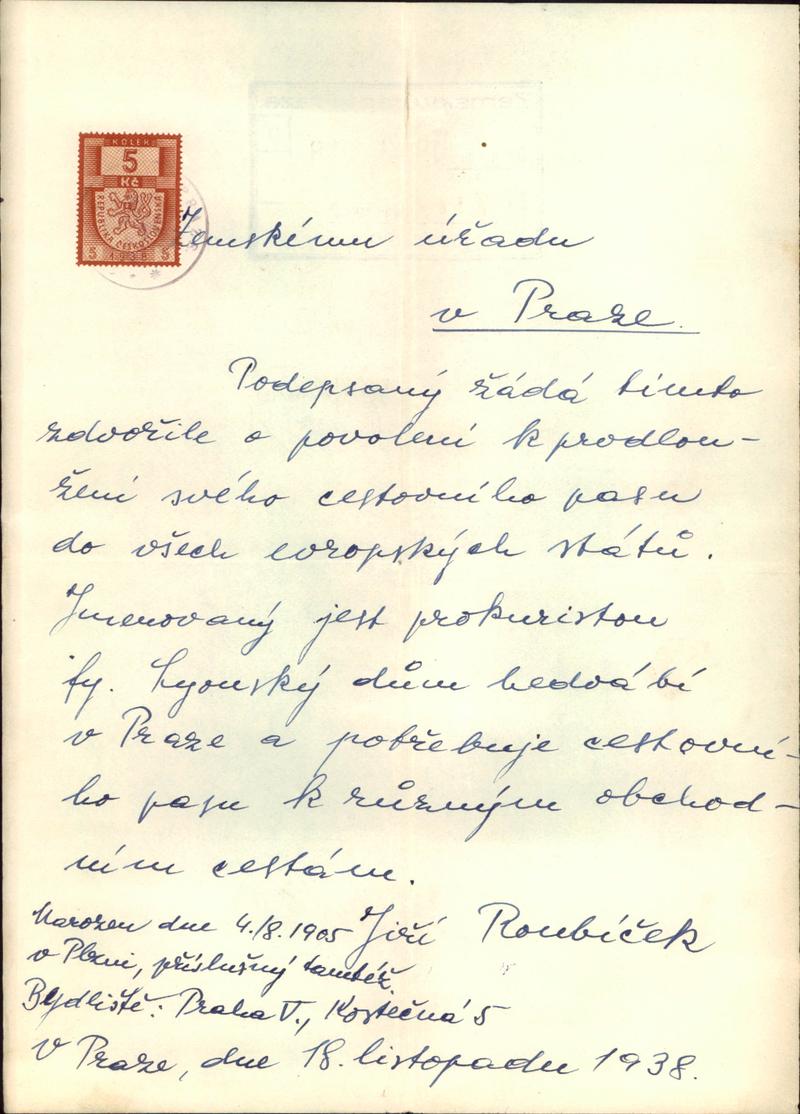 KOLEK
5
Kč
REPUBLIKA ČESKOSLOVENSKÁ
5 1938 5
Zemskému úřadu
v Praze.
Podepsaný žádá tímto
zdvořile o povolení k prodlou-
žení svého cestovního pasu
do všech evropských států.
Jmenovaný jest prokuristou
fy. Lyonský dům hedvábí
v Praze a potřebuje cestovní-
ho pasu k různým obchod-
ním cestám.
Narozen dne 4./8. 1905 Jiří Roubíček
v Plzni, příslušný tamtéž.
Bydliště: Praha V., Kostečná 5
V Praze, dne 18. listopadu 1938.